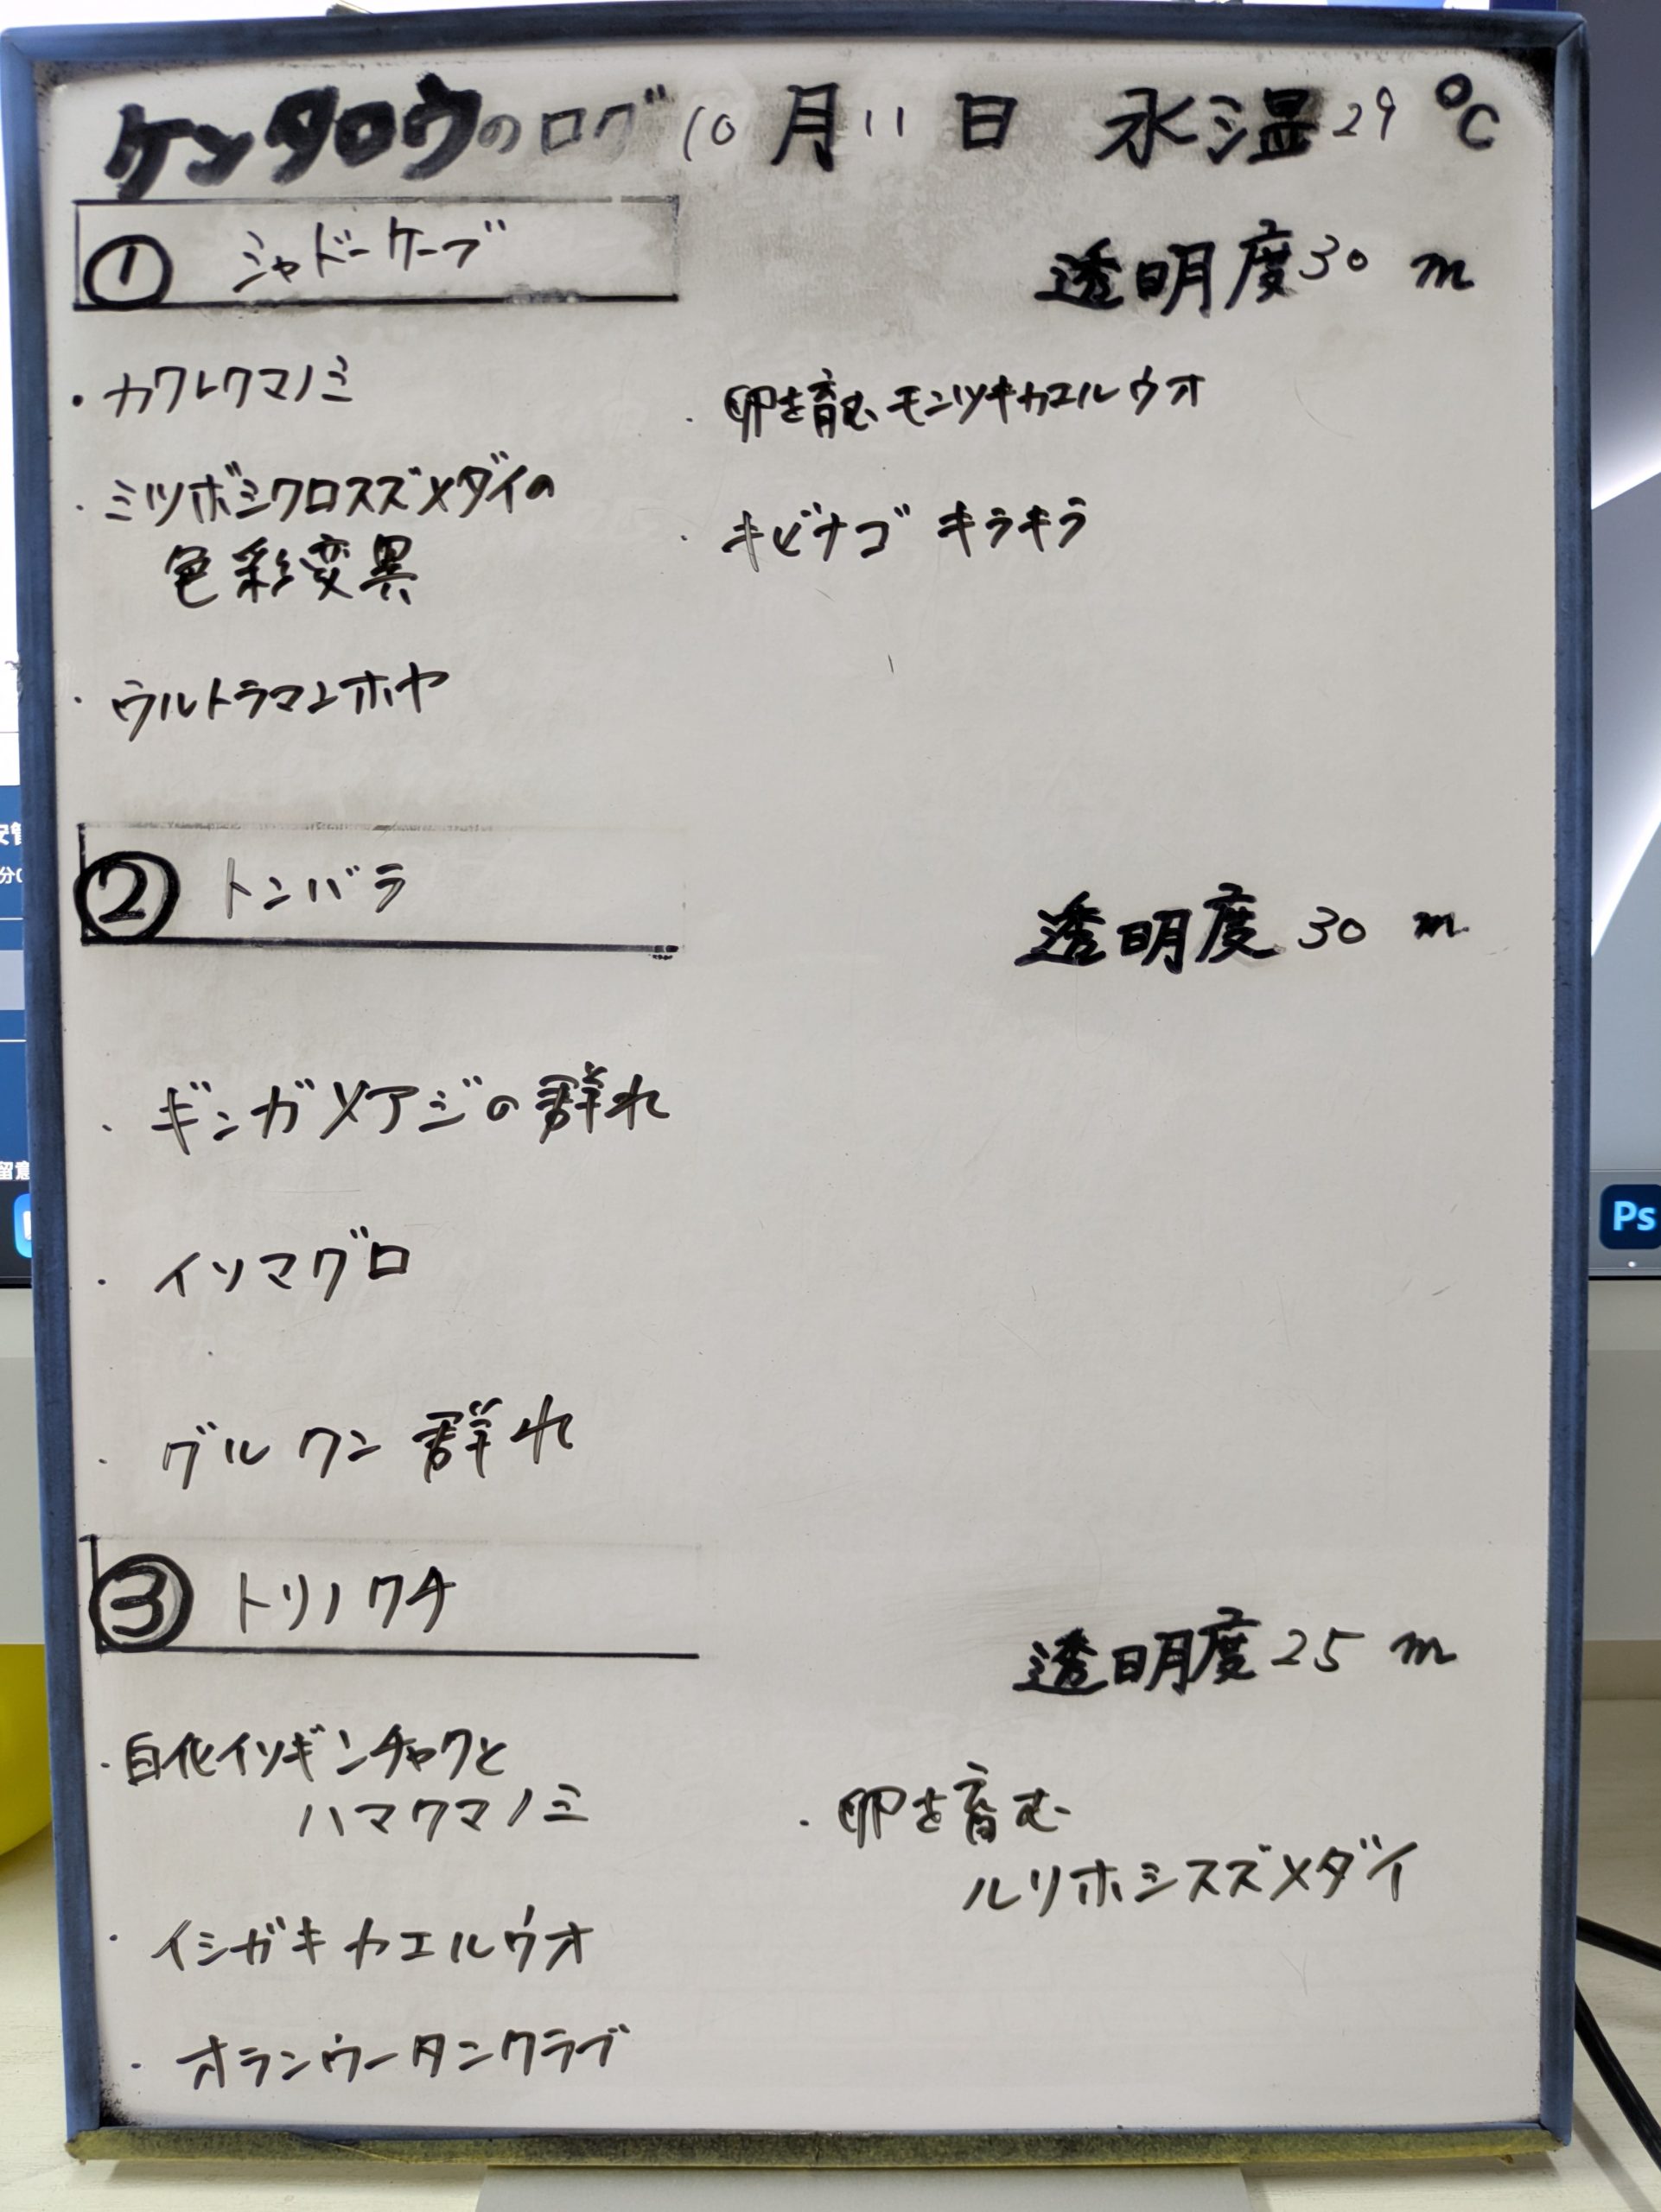 ケンタロウのログ 10月11日 水温29℃
① シャドーケーブ
透明度30m
・カクレクマノミ
・ミツボシクロスズメダイの
色彩変異
・ウルトラマンホヤ
・卵を育む モンツキカエルウオ
・キビナゴ キラキラ
② トンバラ
透明度30m
・ギンガメアジの群れ
・イソマグロ
・グルクン 群れ
③ トリノクチ
透明度25m
・白化イソギンチャクと
ハマクマノミ
・イシガキカエルウオ
・オランウータンクラブ
・卵を育む
ルリホシスズメダイ
Ps